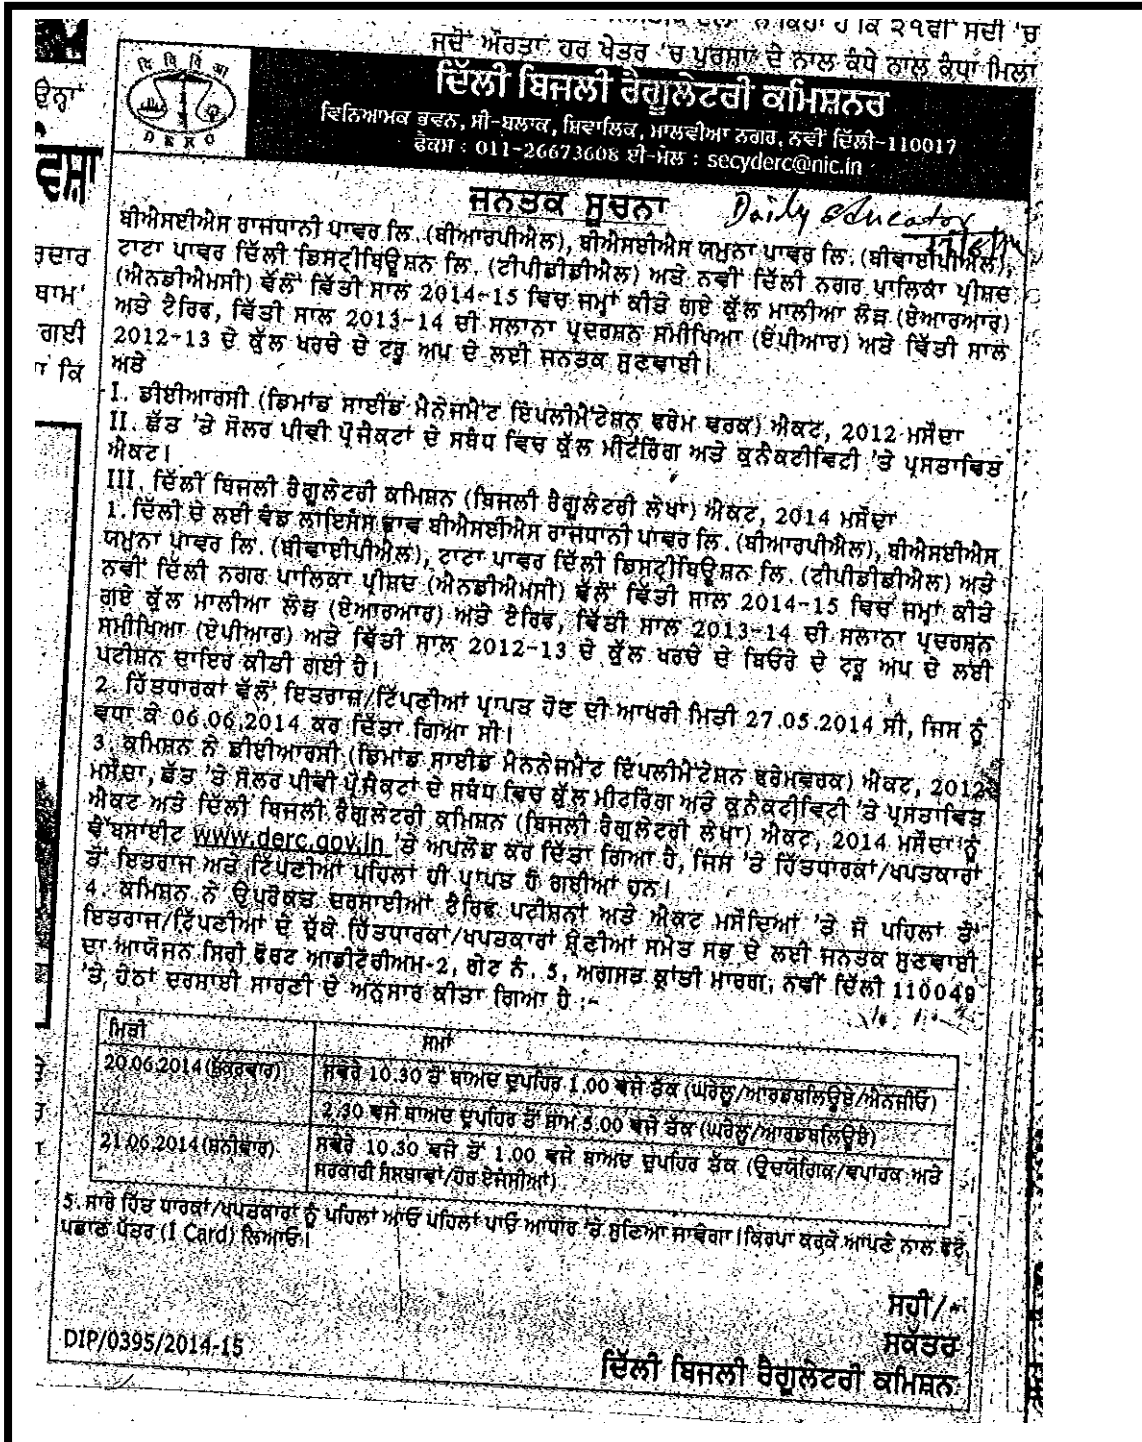 ਜਦੋਂ ਔਰਤਾਂ ਹਰ ਖੇਤਰ 'ਚ ਪੁਰਸ਼ਾਂ ਦੇ ਨਾਲ ਕੰਧੇ ਨਾਲ ਕੰਧਾ ਮਿਲਾ
ਦਿੱਲੀ ਬਿਜਲੀ ਰੈਗੂਲੇਟਰੀ ਕਮਿਸ਼ਨਰ
ਵਿਨਿਆਮਕ ਭਵਨ, ਸੀ-ਬਲਾਕ, ਸ਼ਿਵਾਲਿਕ, ਮਾਲਵੀਆ ਨਗਰ, ਨਵੀਂ ਦਿੱਲੀ-110017
ਫੈਕਸ : 011-26673608 ਈ-ਮੇਲ : secyderc@nic.in
DERC
ਜਨਤਕ ਸੂਚਨਾ
Daily educator
ਬੀਐਸਈਐਸ ਰਾਜਧਾਨੀ ਪਾਵਰ ਲਿ. (ਬੀਆਰਪੀਐਲ), ਬੀਐਸਈਐਸ ਯਮੁਨਾ ਪਾਵਰ ਲਿ. (ਬੀਵਾਈਪੀਐਲ),
ਟਾਟਾ ਪਾਵਰ ਦਿੱਲੀ ਡਿਸਟ੍ਰੀਬਿਊਸ਼ਨ ਲਿ. (ਟੀਪੀਡੀਡੀਐਲ) ਅਤੇ ਨਵੀਂ ਦਿੱਲੀ ਨਗਰ ਪਾਲਿਕਾ ਪ੍ਰੀਸ਼ਦ
(ਐਨਡੀਐਮਸੀ) ਵੱਲੋਂ ਵਿੱਤੀ ਸਾਲ 2014-15 ਵਿਚ ਜਮ੍ਹਾਂ ਕੀਤੇ ਗਏ ਕੁੱਲ ਮਾਲੀਆ ਲੋੜ (ਏਆਰਆਰ)
ਅਤੇ ਟੈਰਿਫ, ਵਿੱਤੀ ਸਾਲ 2013-14 ਦੀ ਸਲਾਨਾ ਪ੍ਰਦਰਸ਼ਨ ਸਮੀਖਿਆ (ਏਪੀਆਰ) ਅਤੇ ਵਿੱਤੀ ਸਾਲ
2012-13 ਦੇ ਕੁੱਲ ਖਰਚੇ ਦੇ ਟਰੂ ਅਪ ਦੇ ਲਈ ਜਨਤਕ ਸੁਣਵਾਈ।
ਅਤੇ
I. ਡੀਈਆਰਸੀ (ਡਿਮਾਂਡ ਸਾਈਡ ਮੈਨੇਜਮੈਂਟ ਇੰਪਲੀਮੈਂਟੇਸ਼ਨ ਫਰੇਮ ਵਰਕ) ਐਕਟ, 2012 ਮਸੌਦਾ
II. ਛੱਤ 'ਤੇ ਸੋਲਰ ਪੀਵੀ ਪ੍ਰੋਜੈਕਟਾਂ ਦੇ ਸਬੰਧ ਵਿਚ ਕੁੱਲ ਮੀਟਰਿੰਗ ਅਤੇ ਕੁਨੈਕਟੀਵਿਟੀ 'ਤੇ ਪ੍ਰਸਤਾਵਿਤ
ਐਕਟ।
III. ਦਿੱਲੀ ਬਿਜਲੀ ਰੈਗੂਲੇਟਰੀ ਕਮਿਸ਼ਨ (ਬਿਜਲੀ ਰੈਗੂਲੇਟਰੀ ਲੇਖਾ) ਐਕਟ, 2014 ਮਸੌਦਾ
1. ਦਿੱਲੀ ਦੇ ਲਈ ਵੰਡ ਲਾਇਸੰਸ ਭਾਵ ਬੀਐਸਈਐਸ ਰਾਜਧਾਨੀ ਪਾਵਰ ਲਿ. (ਬੀਆਰਪੀਐਲ), ਬੀਐਸਈਐਸ
ਯਮੁਨਾ ਪਾਵਰ ਲਿ. (ਬੀਵਾਈਪੀਐਲ), ਟਾਟਾ ਪਾਵਰ ਦਿੱਲੀ ਡਿਸਟ੍ਰੀਬਿਊਸ਼ਨ ਲਿ. (ਟੀਪੀਡੀਡੀਐਲ) ਅਤੇ
ਨਵੀਂ ਦਿੱਲੀ ਨਗਰ ਪਾਲਿਕਾ ਪ੍ਰੀਸ਼ਦ (ਐਨਡੀਐਮਸੀ) ਵੱਲੋਂ ਵਿੱਤੀ ਸਾਲ 2014-15 ਵਿਚ ਜਮ੍ਹਾਂ ਕੀਤੇ
ਗਏ ਕੁੱਲ ਮਾਲੀਆ ਲੋੜ (ਏਆਰਆਰ) ਅਤੇ ਟੈਰਿਫ, ਵਿੱਤੀ ਸਾਲ 2013-14 ਦੀ ਸਲਾਨਾ ਪ੍ਰਦਰਸ਼ਨ
ਸਮੀਖਿਆ (ਏਪੀਆਰ) ਅਤੇ ਵਿੱਤੀ ਸਾਲ 2012-13 ਦੇ ਕੁੱਲ ਖਰਚੇ ਦੇ ਬਿਓਰੇ ਦੇ ਟਰੂ ਅਪ ਦੇ ਲਈ
ਪਟੀਸ਼ਨ ਦਾਇਰ ਕੀਤੀ ਗਈ ਹੈ।
2. ਹਿੱਤਧਾਰਕਾਂ ਵੱਲੋਂ ਇਤਰਾਜ਼/ਟਿੱਪਣੀਆਂ ਪ੍ਰਾਪਤ ਹੋਣ ਦੀ ਆਖਰੀ ਮਿਤੀ 27.05.2014 ਸੀ, ਜਿਸ ਨੂੰ
ਵਧਾ ਕੇ 06.06.2014 ਕਰ ਦਿੱਤਾ ਗਿਆ ਸੀ।
3. ਕਮਿਸ਼ਨ ਨੇ ਡੀਈਆਰਸੀ (ਡਿਮਾਂਡ ਸਾਈਡ ਮੈਨਨੇਜਮੈਂਟ ਇੰਪਲੀਮੈਂਟੇਸ਼ਨ ਫਰੇਮਵਰਕ) ਐਕਟ, 2012
ਮਸੌਦਾ, ਛੱਤ 'ਤੇ ਸੋਲਰ ਪੀਵੀ ਪ੍ਰੋਜੈਕਟਾਂ ਦੇ ਸਬੰਧ ਵਿਚ ਕੁੱਲ ਮੀਟਰਿੰਗ ਅਤੇ ਕੁਨੈਕਟੀਵਿਟੀ 'ਤੇ ਪ੍ਰਸਤਾਵਿਤ
ਐਕਟ ਅਤੇ ਦਿੱਲੀ ਬਿਜਲੀ ਰੈਗੂਲੇਟਰੀ ਕਮਿਸ਼ਨ (ਬਿਜਲੀ ਰੈਗੂਲੇਟਰੀ ਲੇਖਾ) ਐਕਟ, 2014 ਮਸੌਦਾ ਨੂੰ
ਵੈੱਬਸਾਈਟ www.derc.gov.in 'ਤੇ ਅਪਲੋਡ ਕਰ ਦਿੱਤਾ ਗਿਆ ਹੈ, ਜਿਸ 'ਤੇ ਹਿੱਤਧਾਰਕਾਂ/ਖਪਤਕਾਰਾਂ
ਤੋਂ ਇਤਰਾਜ ਅਤੇ ਟਿੱਪਣੀਆਂ ਪਹਿਲਾਂ ਹੀ ਪ੍ਰਾਪਤ ਹੋ ਗਈਆਂ ਹਨ।
4. ਕਮਿਸ਼ਨ ਨੇ ਉਪਰੋਕਤ ਦਰਸਾਈਆਂ ਟੈਰਿਫ ਪਟੀਸ਼ਨਾਂ ਅਤੇ ਐਕਟ ਮਸੌਦਿਆਂ 'ਤੇ ਜੋ ਪਹਿਲਾਂ ਤੋਂ
ਇਤਰਾਜ/ਟਿੱਪਣੀਆਂ ਦੇ ਚੁੱਕੇ ਹਿੱਤਧਾਰਕਾਂ/ਖਪਤਕਾਰਾਂ ਸ਼੍ਰੇਣੀਆਂ ਸਮੇਤ ਸਭ ਦੇ ਲਈ ਜਨਤਕ ਸੁਣਵਾਈ
ਦਾ ਆਯੋਜਨ ਸਿਰੀ ਫੋਰਟ ਆਡੀਟੋਰੀਅਮ-2, ਗੇਟ ਨੰ. 5, ਅਗਸਤ ਕ੍ਰਾਂਤੀ ਮਾਰਗ, ਨਵੀਂ ਦਿੱਲੀ 110049
'ਤੇ ਹੇਠਾਂ ਦਰਸਾਈ ਸਾਰਣੀ ਦੇ ਅਨੁਸਾਰ ਕੀਤਾ ਗਿਆ ਹੈ :-
ਮਿਤੀ ਸਮਾਂ
20.06.2014 (ਸ਼ੁੱਕਰਵਾਰ) ਸਵੇਰੇ 10.30 ਤੋਂ ਬਾਅਦ ਦੁਪਹਿਰ 1.00 ਵਜੇ ਤੱਕ (ਘਰੇਲੂ/ਆਰਡਬਲਿਊਏ/ਐਨਜੀਓ)
2.30 ਵਜੇ ਬਾਅਦ ਦੁਪਹਿਰ ਤੋਂ ਸ਼ਾਮ 5.00 ਵਜੇ ਤੱਕ (ਘਰੇਲੂ/ਆਰਡਬਲਿਊਏ)
21.06.2014 (ਸ਼ਨੀਵਾਰ) ਸਵੇਰੇ 10.30 ਵਜੇ ਤੋਂ 1.00 ਵਜੇ ਬਾਅਦ ਦੁਪਹਿਰ ਤੱਕ (ਉਦਯੋਗਿਕ/ਵਪਾਰਕ ਅਤੇ
ਸਰਕਾਰੀ ਸੰਸਥਾਵਾਂ/ਹੋਰ ਏਜੰਸੀਆਂ)
5. ਸਾਰੇ ਹਿੱਤ ਧਾਰਕਾਂ/ਖਪਤਕਾਰਾਂ ਨੂੰ ਪਹਿਲਾਂ ਆਓ ਪਹਿਲਾਂ ਪਾਓ ਆਧਾਰ 'ਤੇ ਸੁਣਿਆ ਜਾਵੇਗਾ। ਕਿਰਪਾ ਕਰਕੇ ਆਪਣੇ ਨਾਲ ਫੋਟੋ
ਪਛਾਣ ਪੱਤਰ (I Card) ਲਿਆਓ।
ਸਹੀ/-
ਸਕੱਤਰ
DIP/0395/2014-15
ਦਿੱਲੀ ਬਿਜਲੀ ਰੈਗੂਲੇਟਰੀ ਕਮਿਸ਼ਨ